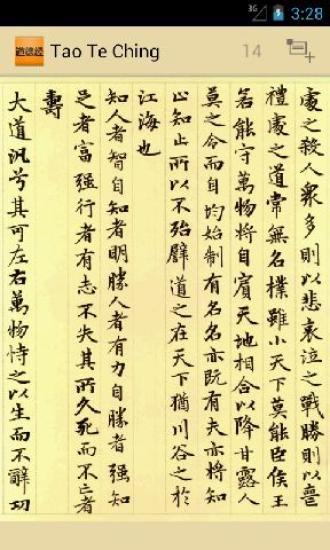 3G 3:28
道德經 Tao Te Ching 14
處之殺人眾多則以悲哀泣之戰勝則以喪
禮處之道常無名樸雖小天下莫能臣侯王
若能守萬物將自賓天地相合以降甘露人
莫之令而自均始制有名名亦既有夫亦將知
止知止所以不殆譬道之在天下猶川谷之於
江海也
知人者智自知者明勝人者有力自勝者強知
足者富強行者有志不失其所久死而不亡者
壽
大道汎兮其可左右萬物恃之以生而不辭功